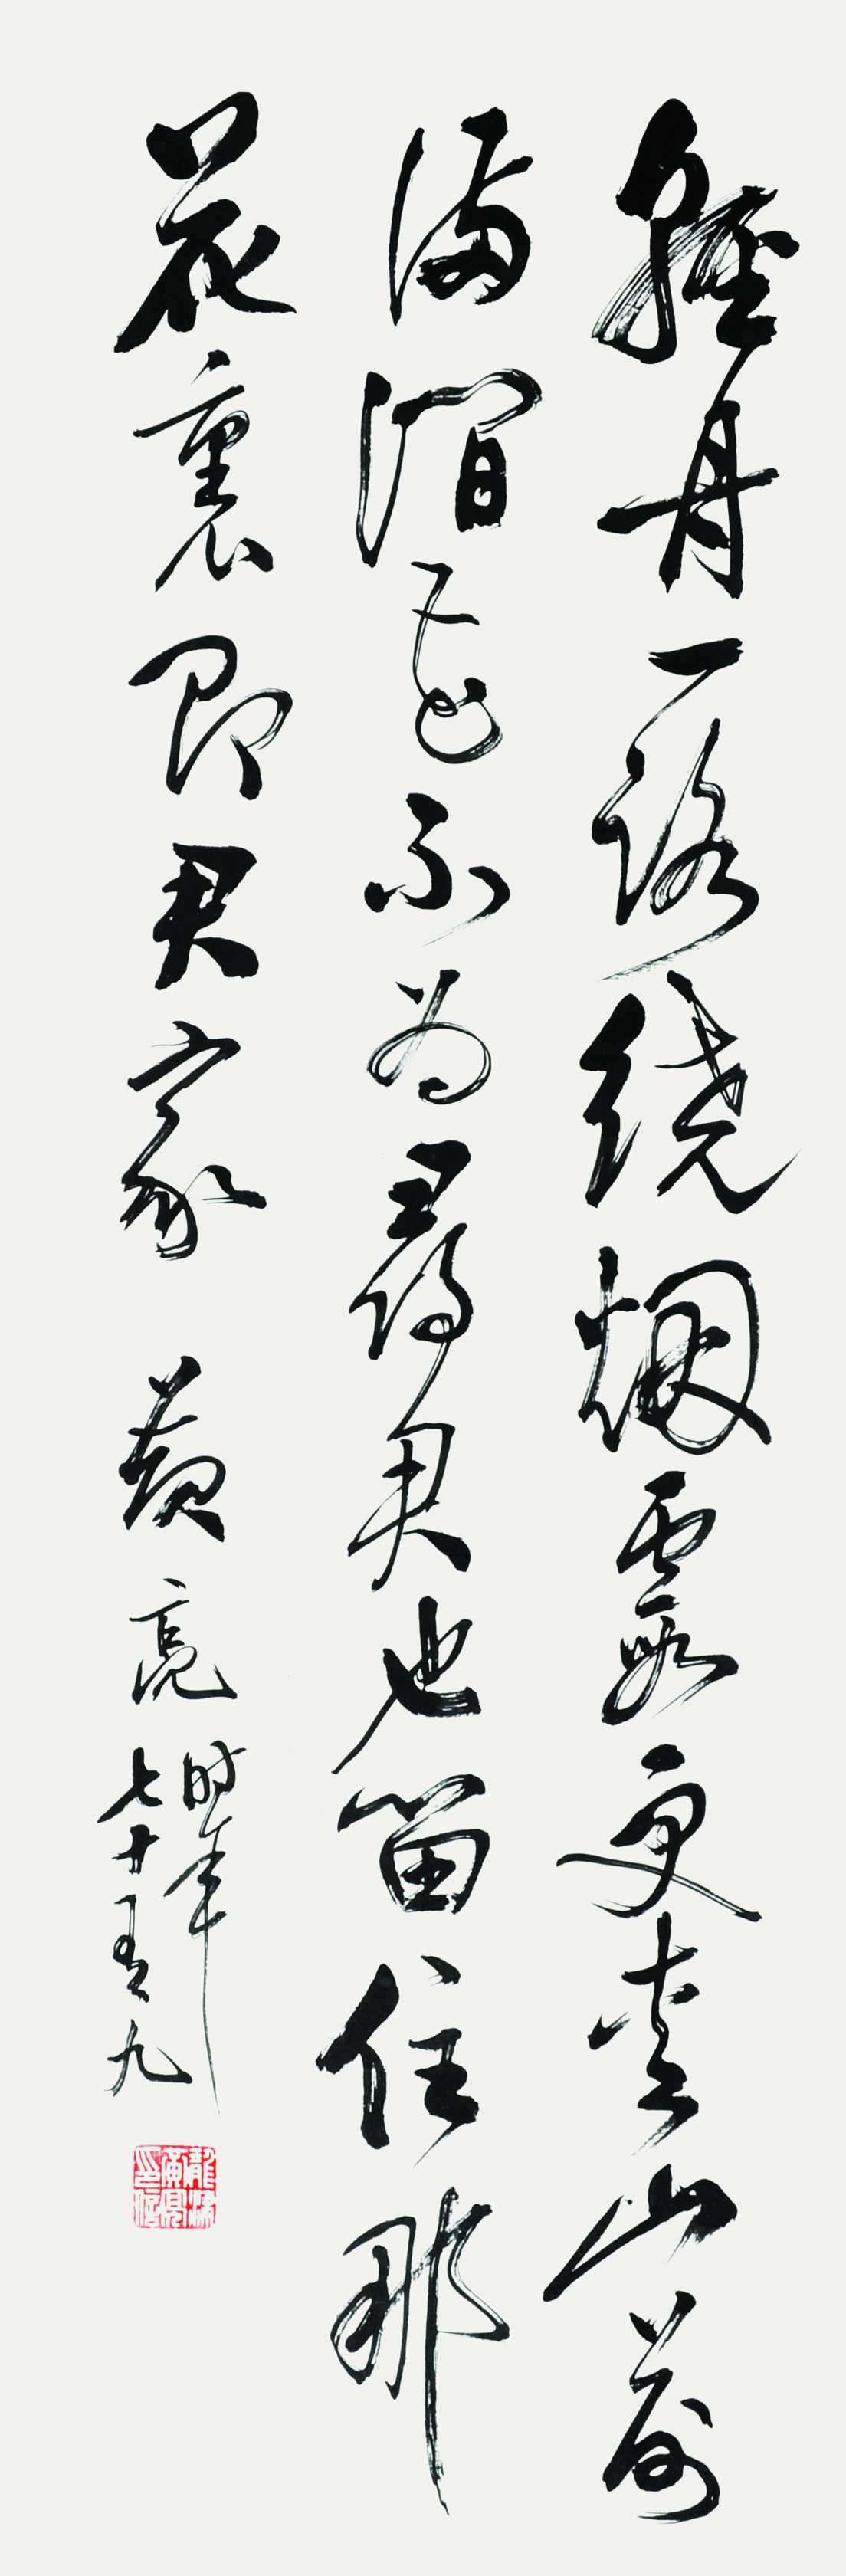 轻舟一路绕烟霞更爱山前
满涧花不为寻君也留住那
花裏即君家 黄亮
时年
七十有九